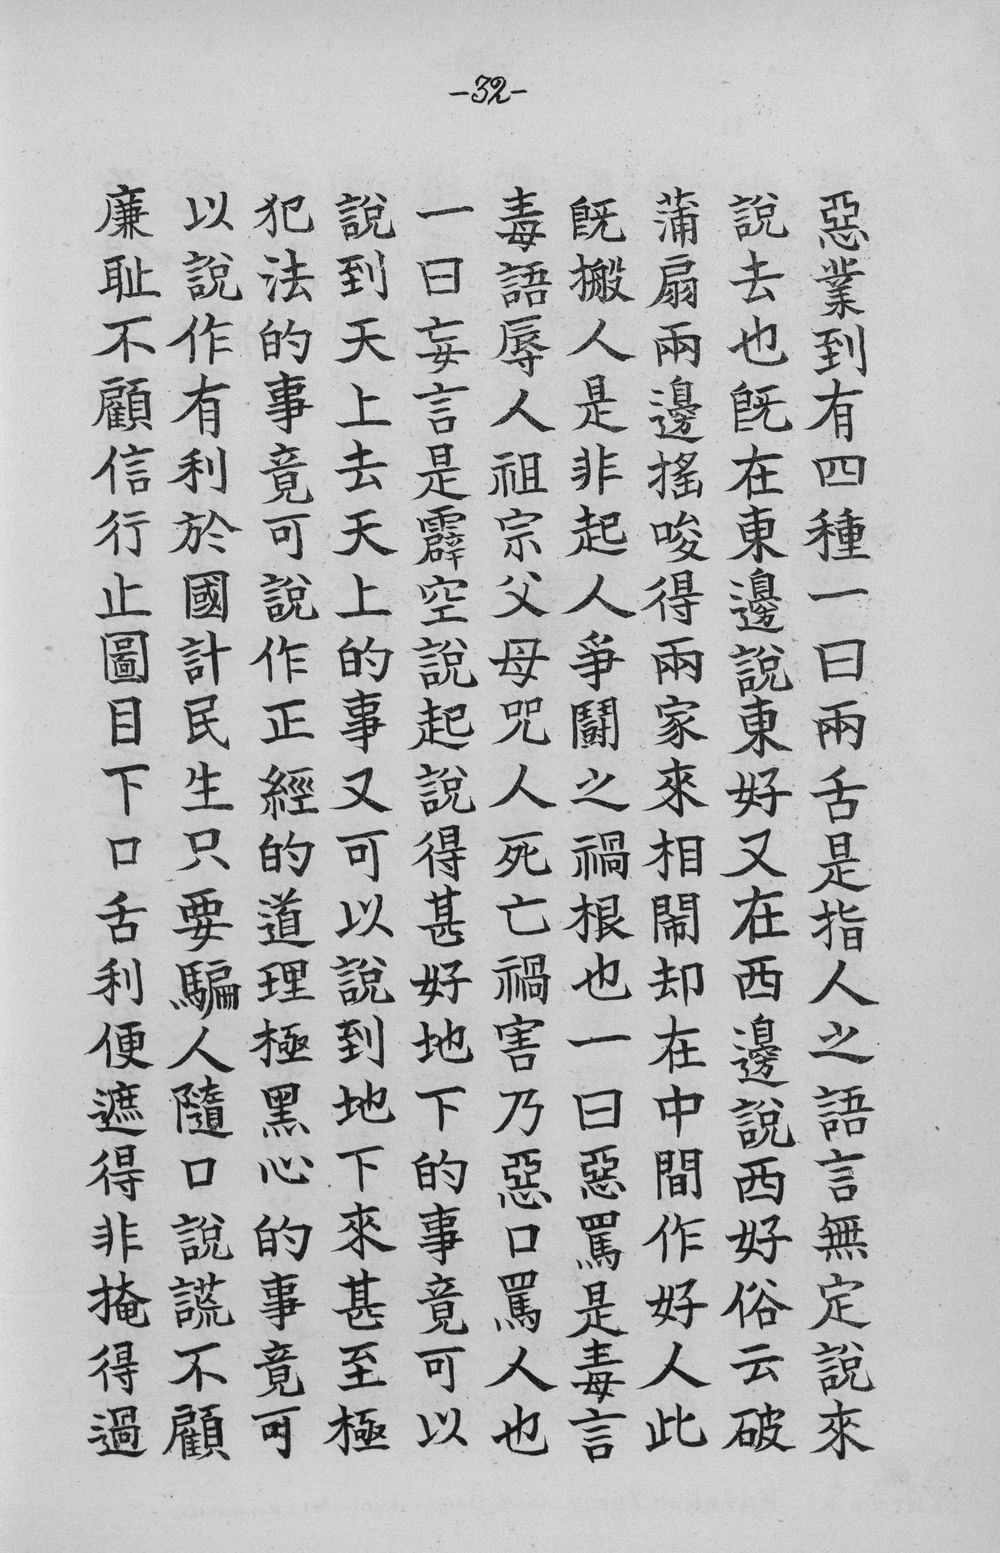 -32-
惡業到有四種一曰兩舌是指人之語言無定說來
說去也既在東邊說東好又在西邊說西好俗云破
蒲扇兩邊搖唆得兩家來相鬧却在中間作好人此
既搬人是非起人爭鬪之禍根也一曰惡罵是毒言
毒語辱人祖宗父母咒人死亡禍害乃惡口罵人也
一曰妄言是霹空說起說得甚好地下的事竟可以
說到天上去天上的事又可以說到地下來甚至極
犯法的事竟可說作正經的道理極黑心的事竟可
以說作有利於國計民生只要騙人隨口說謊不顧
廉耻不顧信行止圖目下口舌利便遮得非掩得過